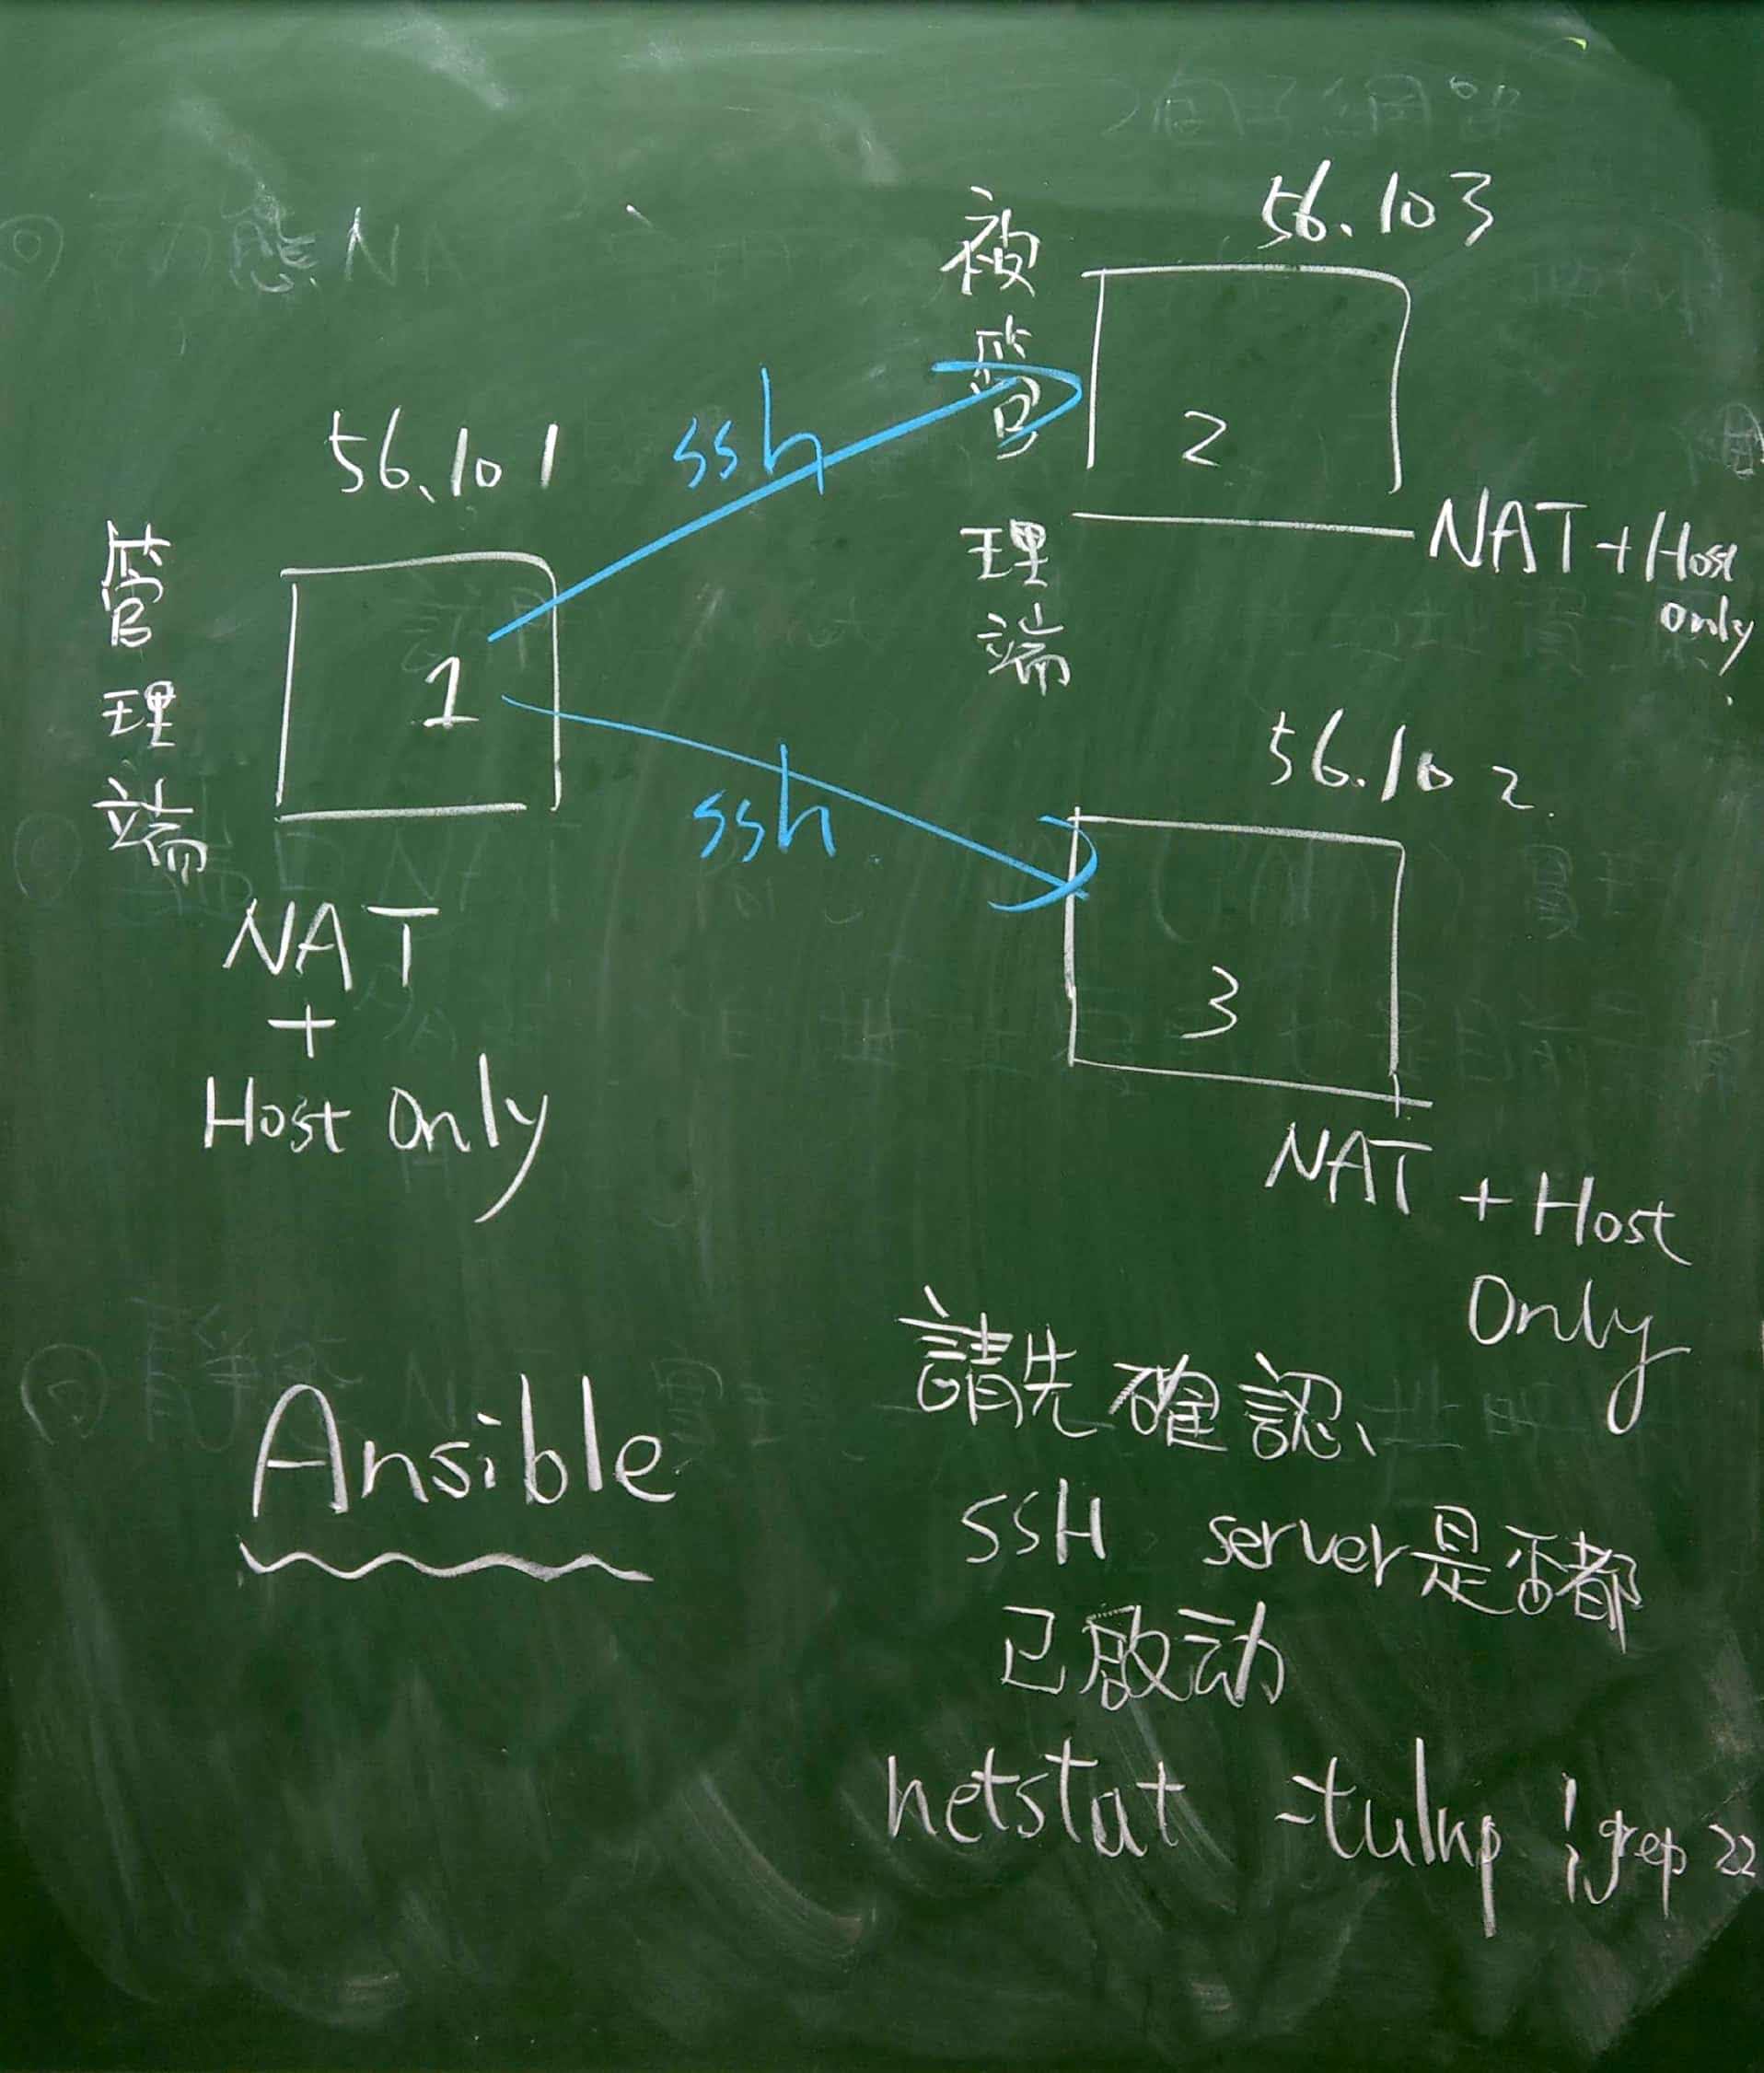 56.103
被管理端
2
NAT + Host
only
56.101
ssh
管理端
1
ssh
NAT
+
Host Only
56.102
3
NAT + Host
Only
Ansible
請先確認
SSH server是否都
已啟动
netstat -tulnp | grep 22